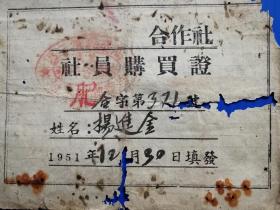 合作社
社員購買證
配合字第371號
姓名：楊進金
1951年12月30日填發